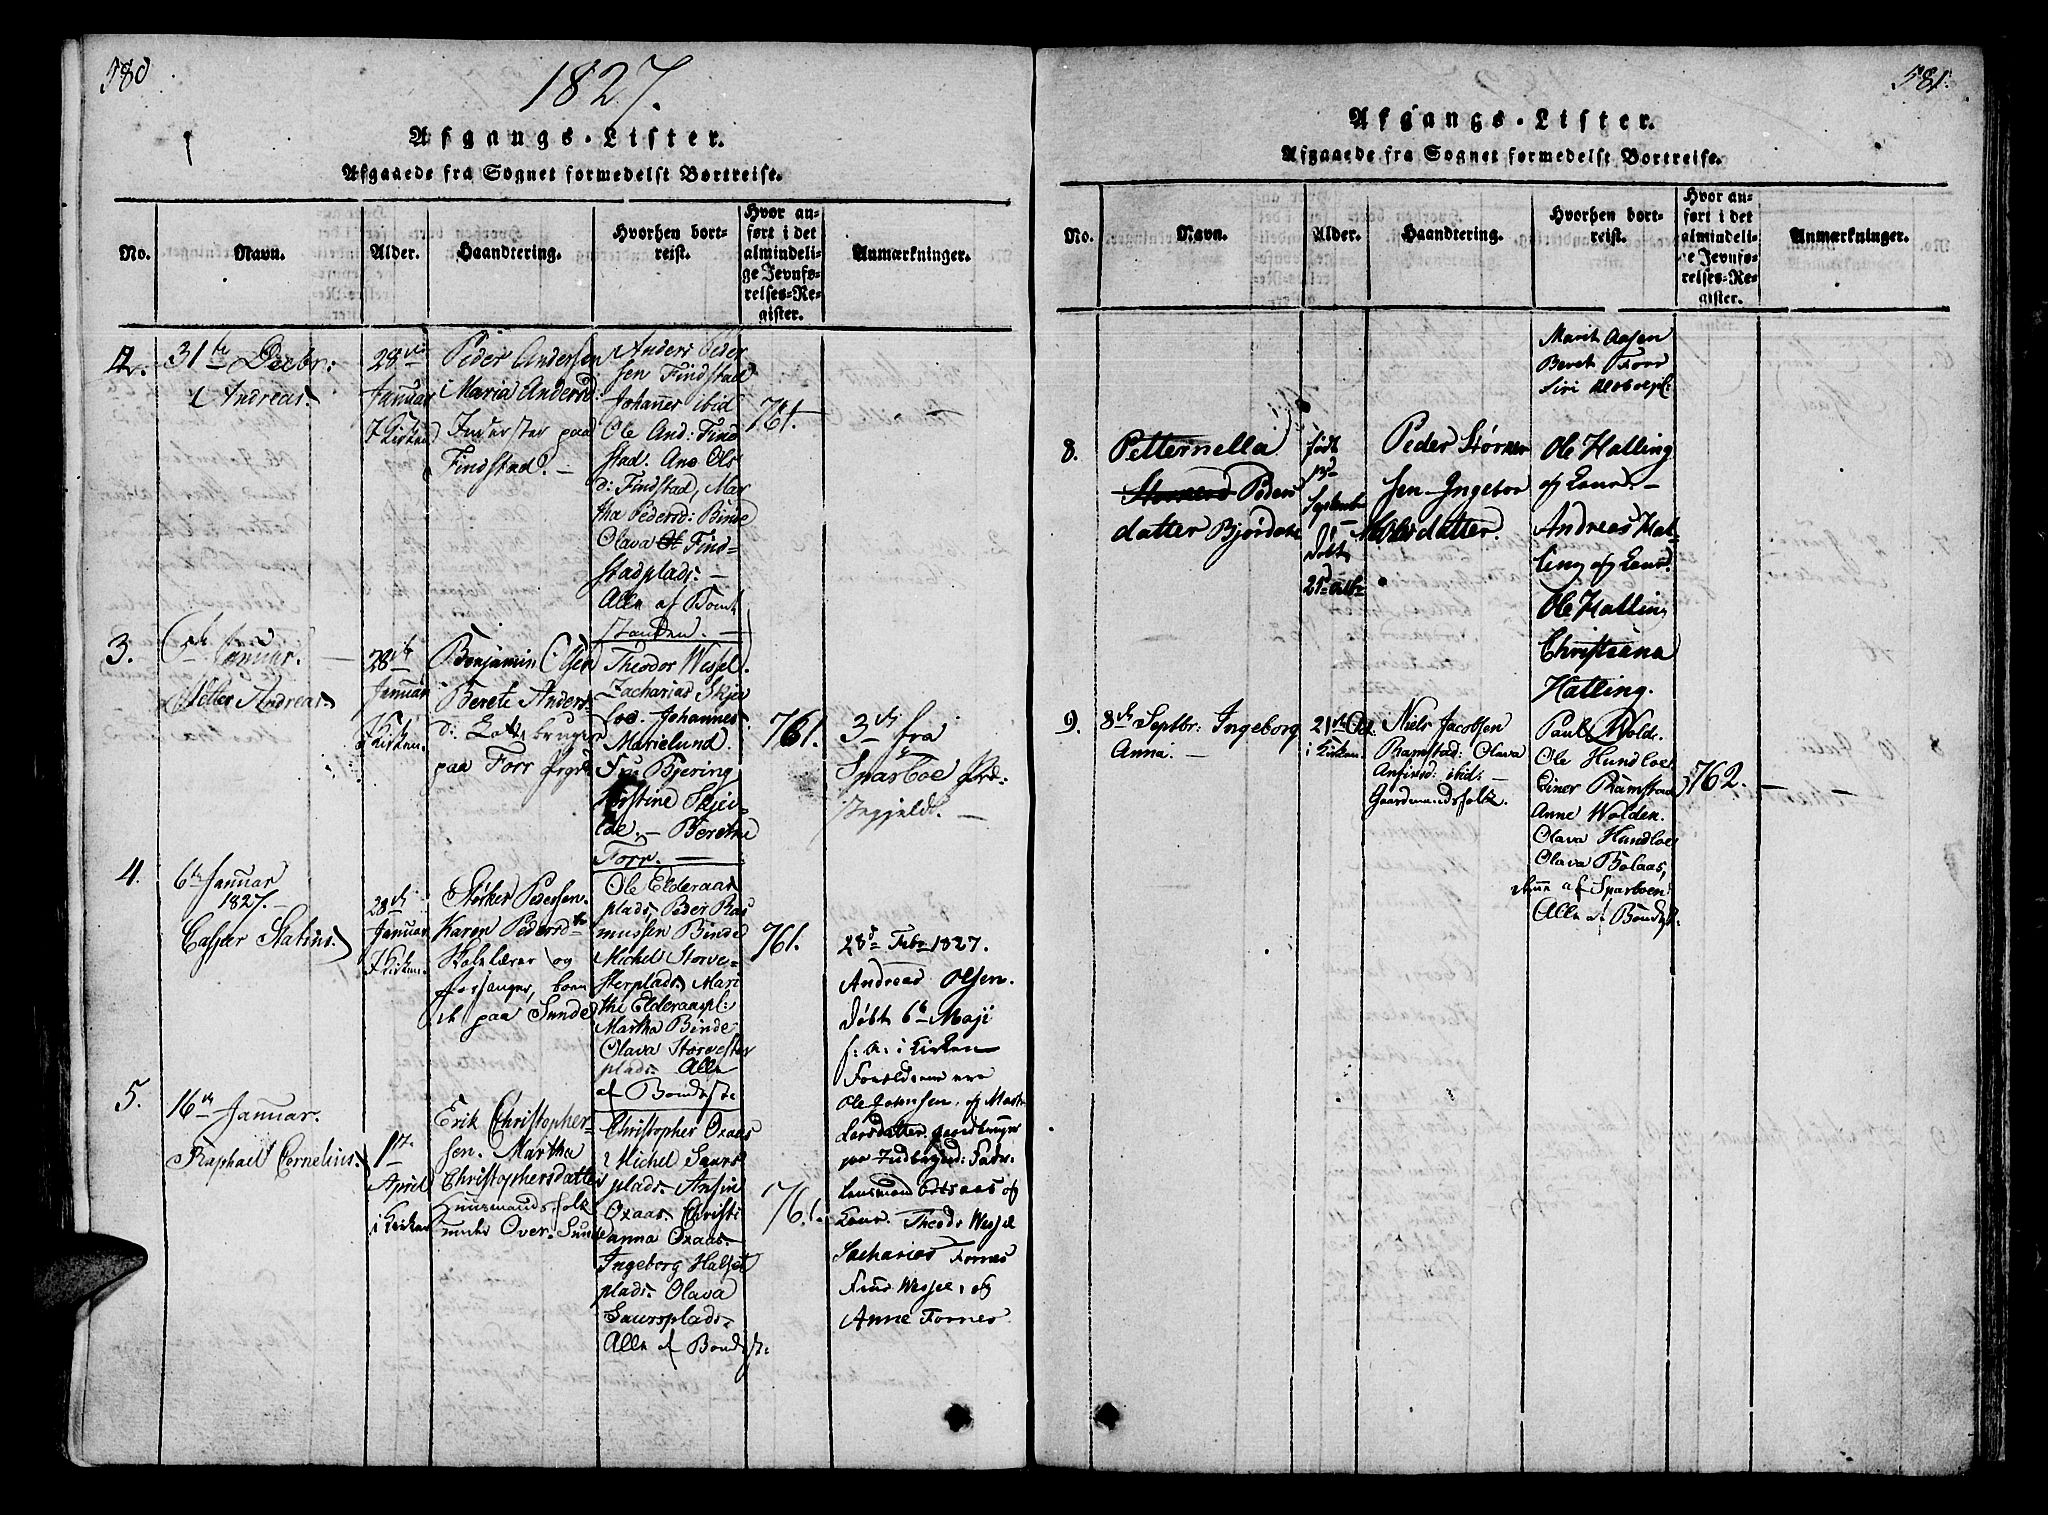 580
1827.
Afgangs-Lister.
Afgaaede fra Sognet formedelst Bortreise.
No.
Navn.
Alder.
Haandtering.
Hvorhen bort-
reist.
Hvor an-
ført i det
almindeli-
ge Jevnfø-
relses-Re-
gister.
Anmærkninger.
2.
31te Decbr:
Andreas.
28de
Januar
I Kirken
Peder Andersen
Maria Andersd:
Inderster paa
Findstad. —
Anders Peder
sen Findstad
Johannes ibid
Ole And: Find
stad. Ane Ols
d: Findstad, Mar
tha Pedersd: Binde
Olava Find-
stadplads. —
Alle af Bonde
standen. —
761.
3.
Januar.
Petter Andreas.
28de
Januar
I Kirken.
Benjamin Olsen
Berete Anders
d:
paa Forr
Theodor Wessel.
Zacharias Skjei
loe. Johannes
Marielund.
Fru Bjering
Kirstine Skjei-
loe. — Berethe
Forr. —
761.
3de fra
Sparboe
Indgjeld. —
4.
6te Januar
1827. —
Casper Statius.
28de
Januar
I Kirken.
Størker Pedersen.
Karen Pedersdtr
Skolelærer og
forsanger, boen
de paa Sunde
Ole Elderaas
plads, Peder Ras
mussen Binde
Michel Storve-
sterplads. Mari
the Elderaaspl:
Martha Binde
Olava Storvester
plads. Alle
af Bondeste
761.
23de Febr 1827.
Andreas Olsen.
Døbt 6te Maji
f: A: i Kirken
Forældrene ere
Ole Johnsen, og
Larsdatter
paa
Lensmand of
Theodr Wessel
Sacharias Fornes
Frue Wessel, og
Anne Fornes.
5.
16de Januar.
Raphael Cornelius.
1st
April
i Kirken
Erik Christopher-
sen. Martha
Christophersdatter
Huusmandsfolk
under Over-Sunde
Christopher Oxaas
Michel Saurs
plads. Ansin
Oxaas. Christi
anna Oxaas.
Ingeborg Halset
plads. Olava
Saursplads.
Alle af Bondest:
761.
581.
Afgangs-Lister.
Afgaaede fra Sognet formedelst Bortreise.
No.
Navn.
Alder.
Haandtering.
Hvorhen bort-
reist.
Hvor an-
ført i det
almindeli-
ge Jevnfø-
relses-Re-
gister.
Anmærkninger.
Marit Aasen
Beret Forr
Siri
8.
Petternella
Peders
datter Bjørdahl
født
September
Døbt
Peder Størker
sen — Ingebor
datter.
Ole Halling
Andreas Hal-
ling
Ole Halling
Christiana
Halling.
9.
8de Septbr: Ingeborg
Anna. —
21de Oct.
i Kirken.
Niels Jacobsen
Ramstad: Olava
Anfinsd: ibid: —
Gaardmandsfolk.
Paul Wold.
Ole Hundloe
Einer Ramstad
Anne Wolden.
Olava Hundloe
Olava Bolaas,
af Sparboen.
Alle af Bondest.
762.